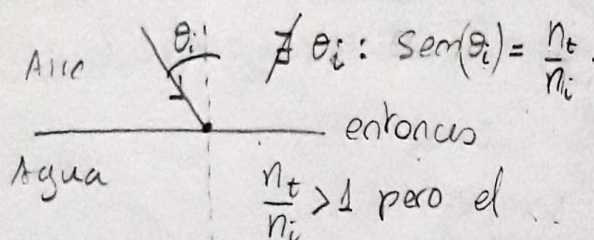 Aire
θi
∄ θi : Sen(θi) = nt/ni.
entonces
Agua
nt/ni > 1 pero el ...